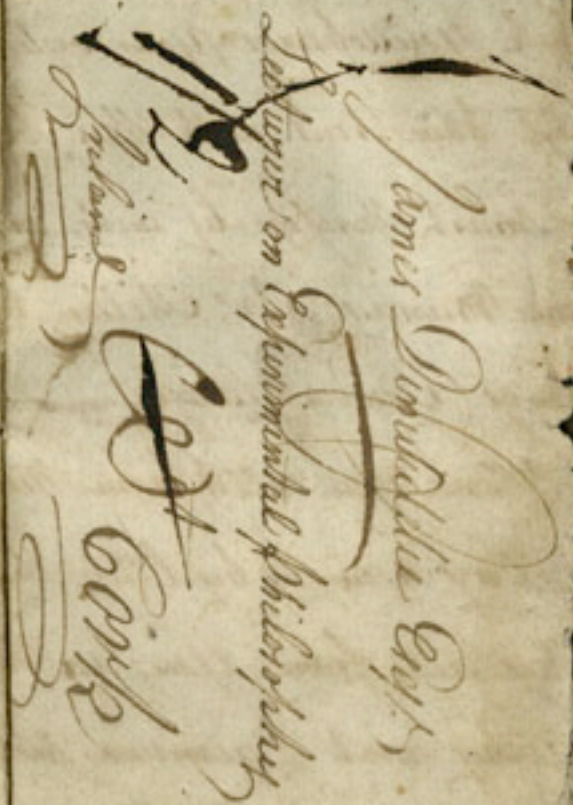 James Dinwiddie Esqr.
Lecturer on Experimental Philosophy
Cork
Ireland